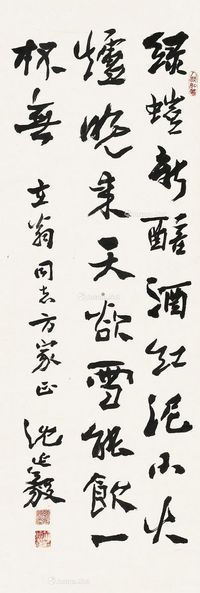 綠螘新醅酒紅泥小火
爐晚來天欲雪能飲一
杯無
立翁同志方家正
沈延毅